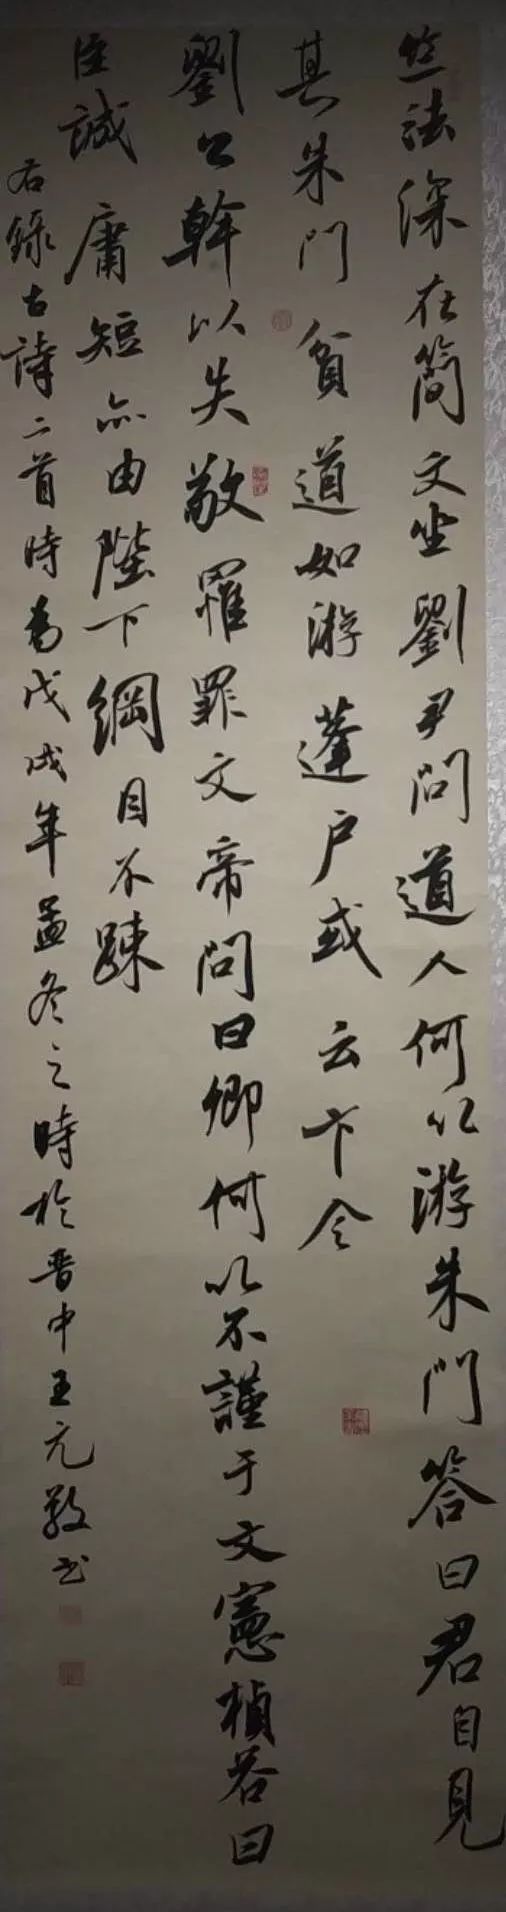 竺法深在簡文坐劉尹問道人何以游朱門答曰君自見
其朱門貧道如游蓬户或云卞令
劉公幹以失敬罹罪文帝問曰卿何以不謹于文憲楨答曰
臣誠庸短亦由陛下綱目不踈
右錄古詩二首時為戊戌年孟冬之時於晋中王元敬书